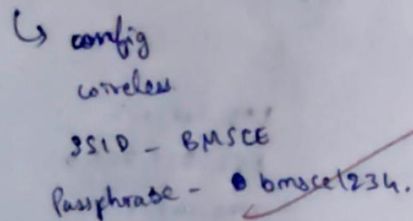 ↳ config
wireless
SSID - BMSCE
Passphrase - bmsce1234.